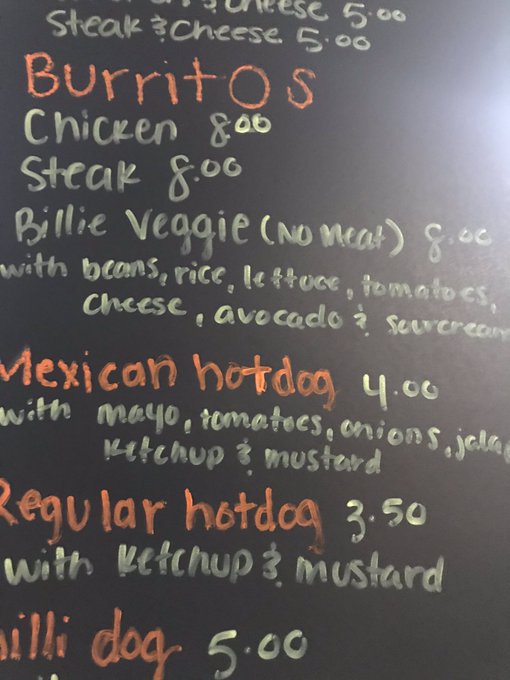 & cheese 5.00
Steak & Cheese 5.00
Burritos
Chicken 8.00
Steak 8.00
Billie Veggie (No Meat) 8.00
with beans, rice, lettuce, tomatoes,
cheese, avocado & sourcream
Mexican hotdog 4.00
with mayo, tomatoes, onions, jala
Ketchup & mustard
Regular hotdog 3.50
with Ketchup & mustard
hilli dog 5.00